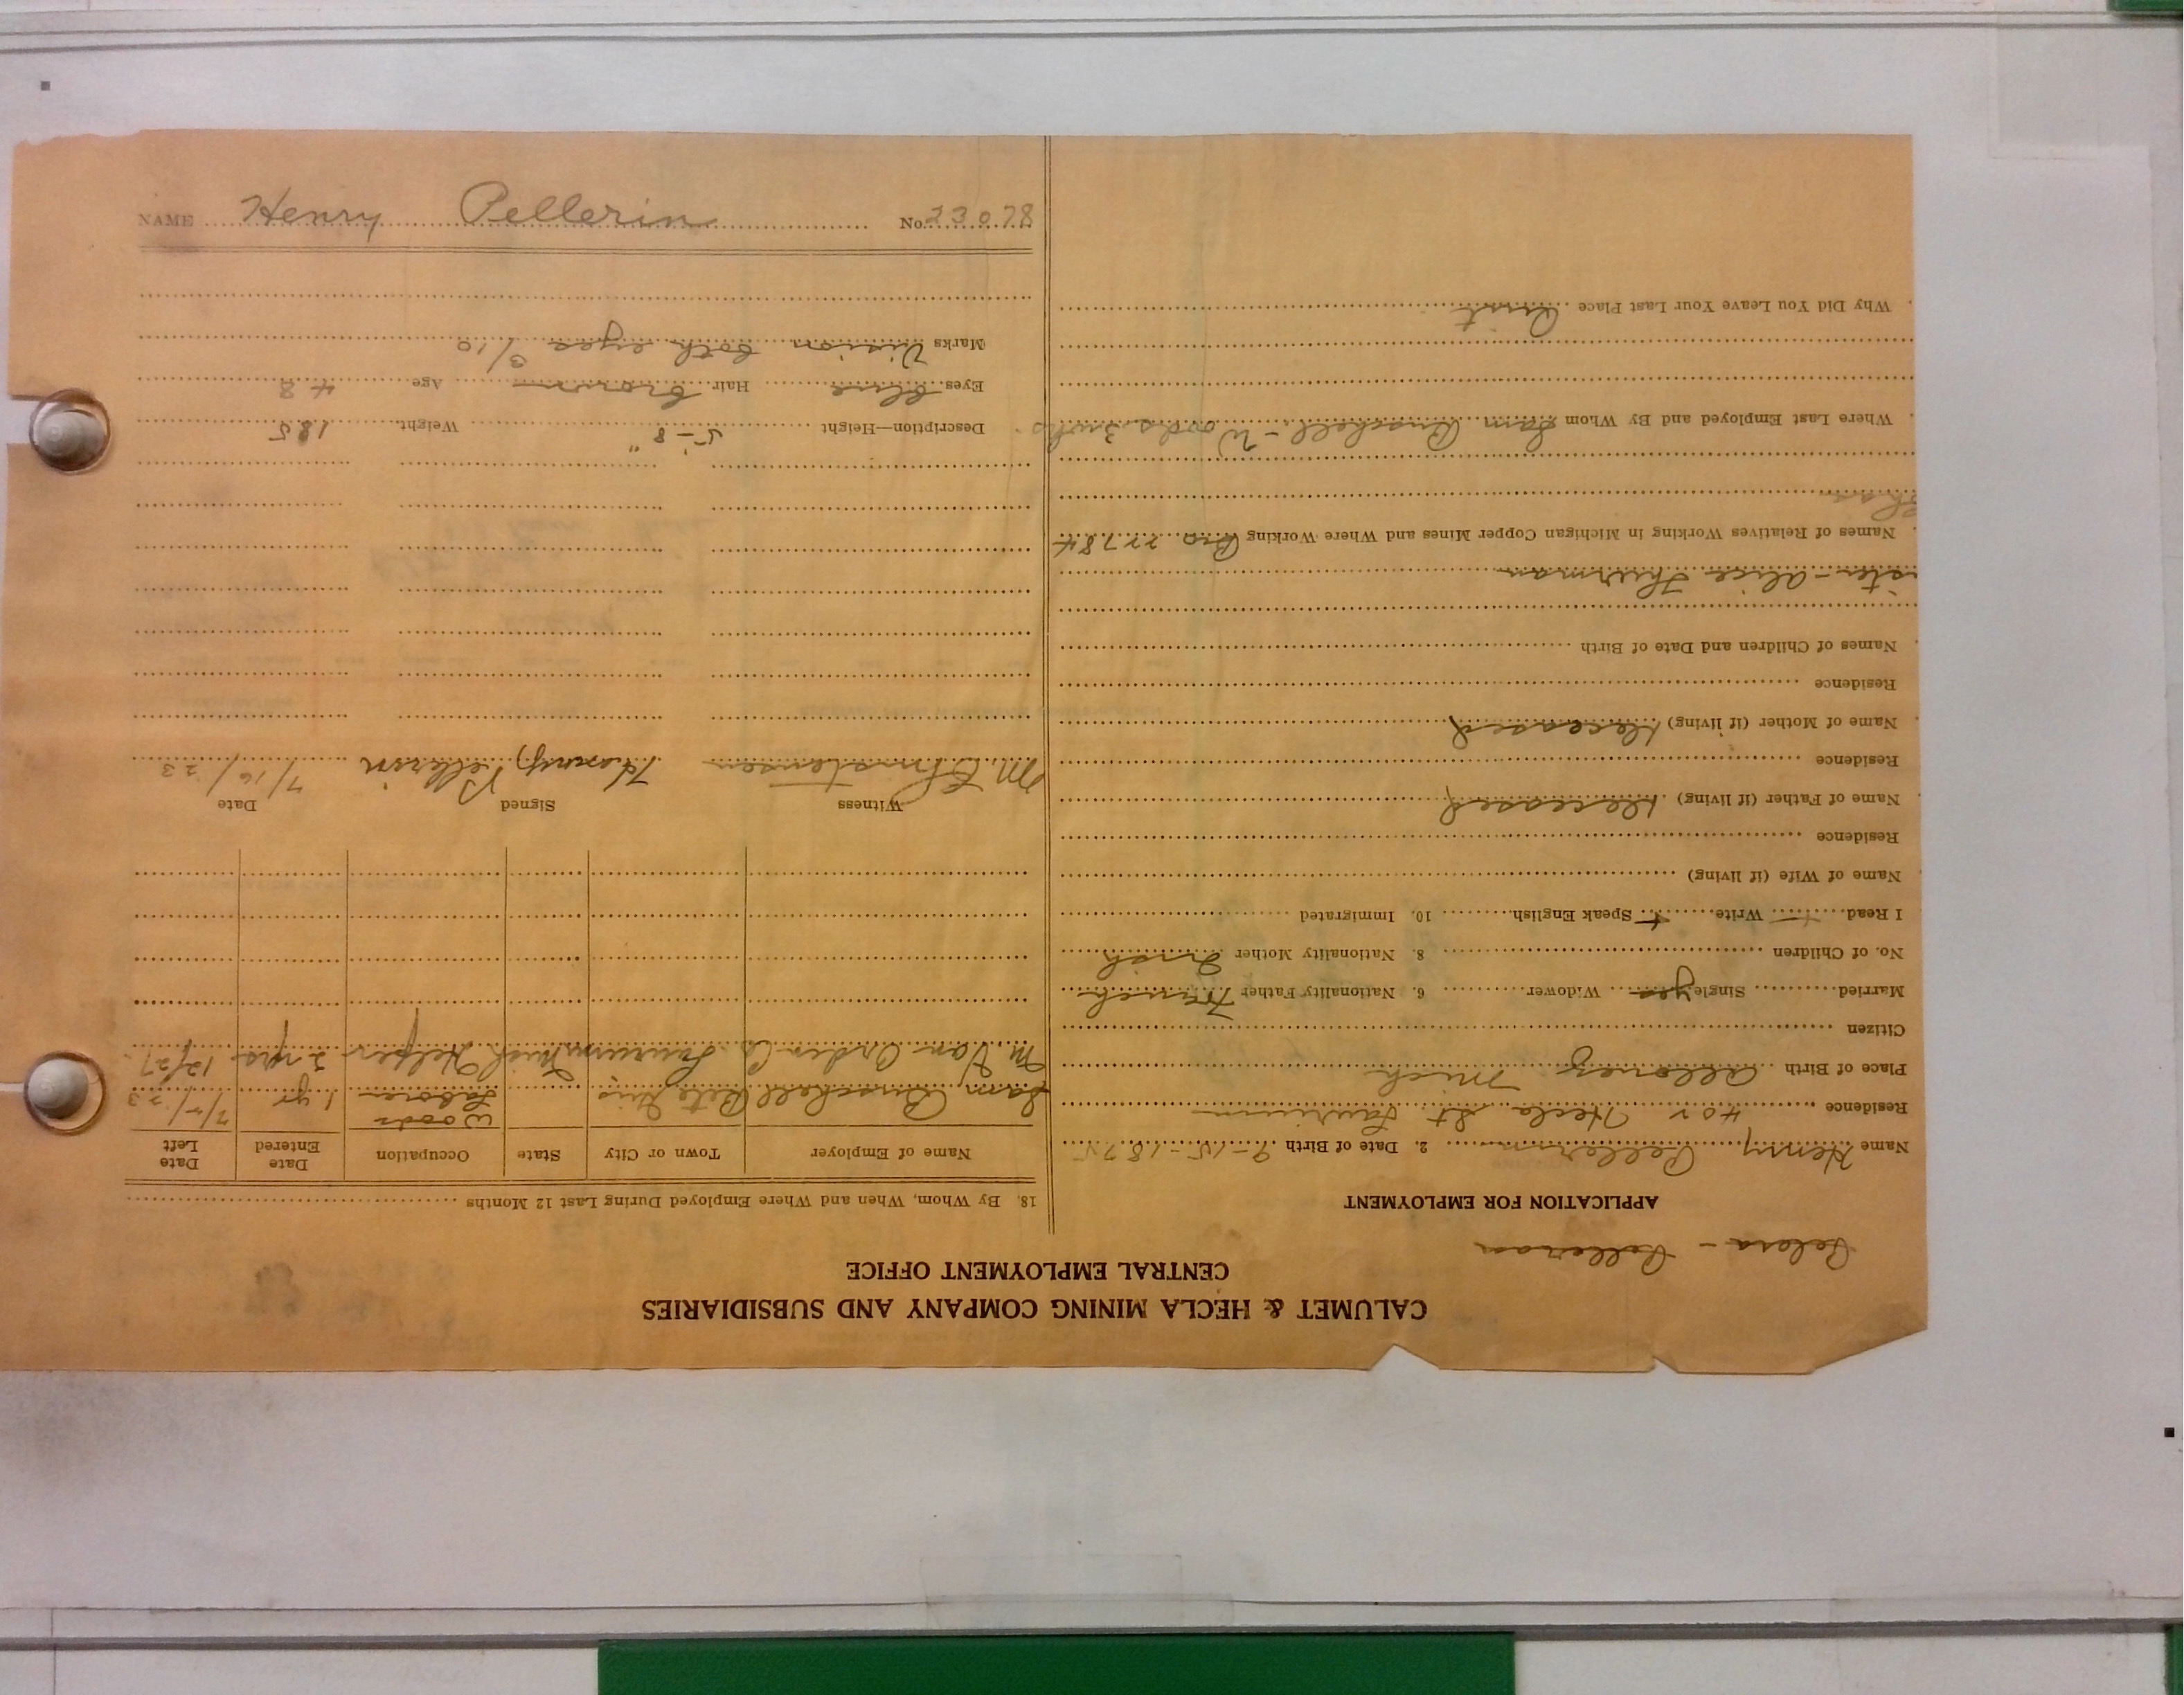 CALUMET & HECLA MINING COMPANY AND SUBSIDIARIES
CENTRAL EMPLOYMENT OFFICE
APPLICATION FOR EMPLOYMENT
Name Henry Pellerin 2. Date of Birth 9-15-1875
Residence 402 Hecla St. Laurium
Place of Birth Allouez Mich
Citizen
Married Single yes Widower 6. Nationality Father French
No. of Children 8. Nationality Mother Irish
I Read Write Speak English 10. Immigrated
Name of Wife (if living)
Residence
Name of Father (if living) deceased
Residence
Name of Mother (if living) deceased
Residence
Names of Children and Date of Birth
ister - Alice Thurman
Names of Relatives Working in Michigan Copper Mines and Where Working Bro 22784
Where Last Employed and By Whom Sam Buschell - Woods
Why Did You Leave Your Last Place Quit
18. By Whom, When and Where Employed During Last 12 Months
Name of Employer Town or City State Occupation Date Entered Date Left
Sam Buschell Woods Laborer 1 yr 7/2/23
M. Van Orden Co. Laurium Mich Helper 2 yrs
Witness Signed Date
M. Christensen Henry Pellerin 7/16/23
Description—Height 5'-8" Weight 185
Eyes blue Hair brown Age 48
Marks Vision both eyes 3/10
NAME Henry Pellerin No. 33078